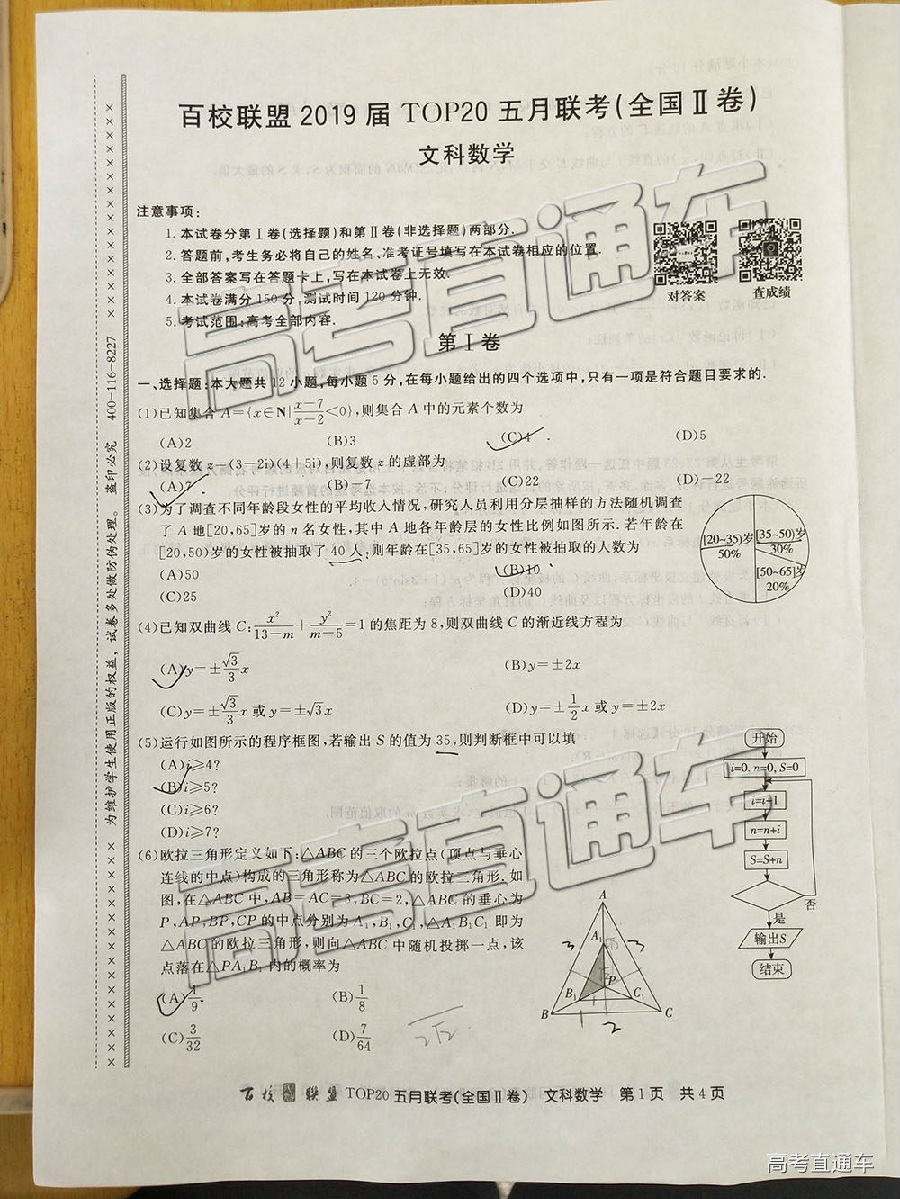 百校联盟2019届TOP20五月联考(全国Ⅱ卷)
文科数学
注意事项:
1.本试卷分第Ⅰ卷(选择题)和第Ⅱ卷(非选择题)两部分.
2.答题前,考生务必将自己的姓名、准考证号填写在本试卷相应的位置.
3.全部答案写在答题卡上,写在本试卷上无效.
4.本试卷满分150分,测试时间120分钟.
5.考试范围:高考全部内容.
对答案 直成绩
第Ⅰ卷
一、选择题:本大题共12小题,每小题5分,在每小题给出的四个选项中,只有一项是符合题目要求的.
(1)已知集合A={x∈N|(x-7)/(x-2)<0},则集合A中的元素个数为
(A)2 (B)3 (C)4 (D)5
(2)设复数z=(3-2i)(4+5i),则复数z的虚部为
(A)7 (B)-7 (C)22 (D)-22
(3)为了调查不同年龄段女性的平均收入情况,研究人员利用分层抽样的方法随机调查
了A地[20,65]岁的n名女性,其中A地各年龄层的女性比例如图所示.若年龄在
[20,50)岁的女性被抽取了40人,则年龄在[35,65]岁的女性被抽取的人数为
(A)50 (B)10
(C)25 (D)40
[20~35)岁
50%
[35~50)岁
30%
[50~65]岁
20%
(4)已知双曲线C:x²/(13-m)+y²/(m-5)=1的焦距为8,则双曲线C的渐近线方程为
(A)y=±√3/3x (B)y=±2x
(C)y=±√3/3x或y=±√3x (D)y=±1/2x或y=±2x
(5)运行如图所示的程序框图,若输出S的值为35,则判断框中可以填
(A)i≥4?
(B)i≥5?
(C)i≥6?
(D)i≥7?
开始
i=0,n=0,S=0
i=i+1
n=n+i
S=S+n
否
是
输出S
结束
(6)欧拉三角形定义如下:△ABC的三个欧拉点(顶点与垂心
连线的中点)构成的三角形称为△ABC的欧拉三角形.如
图,在△ABC中,AB=AC=3,BC=2,△ABC的垂心为
P,AP,BP,CP的中点分别为A₁,B₁,C₁,△A₁B₁C₁即为
△ABC的欧拉三角形,则向△ABC中随机投掷一点,该
点落在△PA₁B₁内的概率为
(A)1/9 (B)1/8
(C)3/32 (D)7/64
A
A₁
P
B₁
C₁
B
C
3
3
1
2
2√2
百校联盟 TOP20五月联考(全国Ⅱ卷) 文科数学 第1页 共4页
为维护学生使用正版的权益,试卷多处做防伪处理。盗印必究 400-116-8227
高考直通车
高考直通车
高考直通车